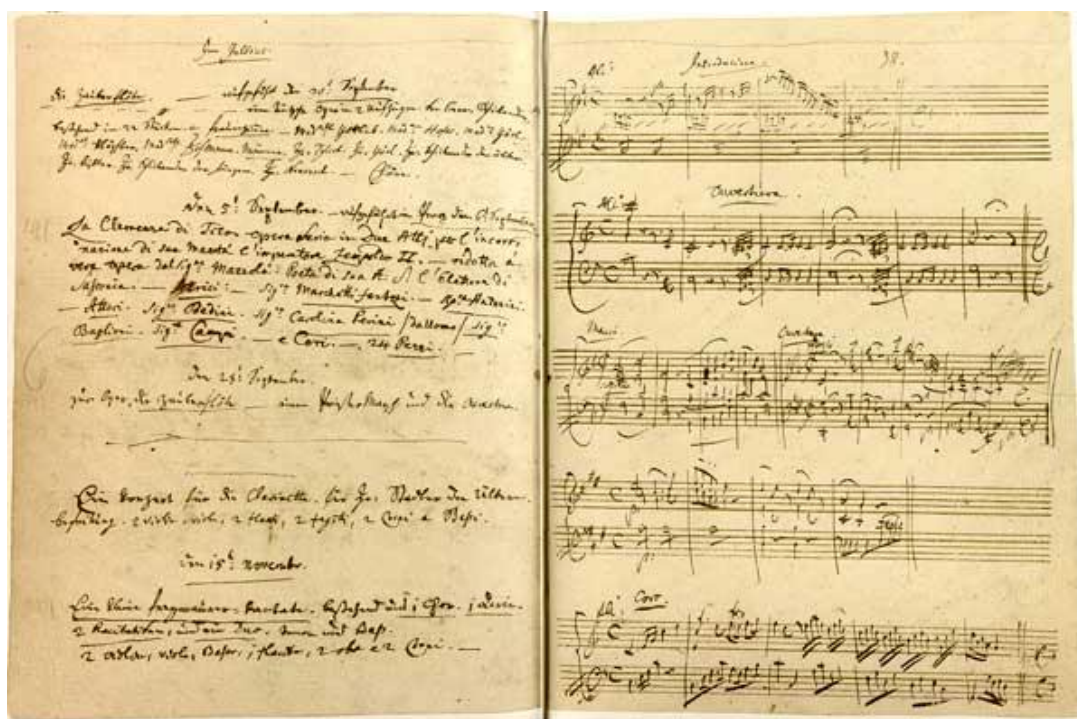 Im Jullius.
Die Zauberflöte. — aufgeführt den 30t September.
eine teutsche Oper in 2 Aufzügen. von Eman. Schikaneder
bestehend in 22 Stücken. — Frauenzimmer. — Mad:selle Gottlieb. Mad:me Hofer. Mad:me Görl.
Mad:me Klöpfler. Mad:selle Hofmann. Männer. Hr: Schack. Hr: Görl. Hr: Schikaneder der ältere.
Hr: Kistler. Hr: Schikaneder der jüngere. Hr: Nouseul. — Chöre.
Den 5t September. — aufgeführt in Prag den 6t September.
La Clemenza di Tito. opera Seria in Due Atti. per l'incoro-
nazione di sua Maestà l'imperatore Leopoldo II. — ridotta á
vera opera dal Sigre Mazzolá. Poeta di sua A: S: l'Elettore di
Sassonia. — Attrici: — Sigra Marchetti fantozi. — Sigra Antonini.
— Attori. Sigre Bedini. Sigra Carolina Perini /da Uomo/ Sigre
Baglioni. Sigre Campi. — e Cori. — 24 Pezzi. —
Den 28t September.
zur Oper, die Zauberflöte — einen Priestermarsch und die Ouverture.
Ein Konzert für die Clarinette. für Hr: Stadler den Ältern.
begleitung. 2 violini, viola, 2 flauti, 2 fagotti, 2 Corni e Baßi.
Den 15t Novembr.
Eine kleine freymaurer-kantate. bestehend aus 1 Chor. 1 Aria.
2 Recitativen, und ein Duo. Tenor und Baß.
2 violini, viola, Basso, 1 flauto, 2 oboe e 2 Corni. —
Introduzione.
38.
Ouverture.
Marci
Ouverture
Coro